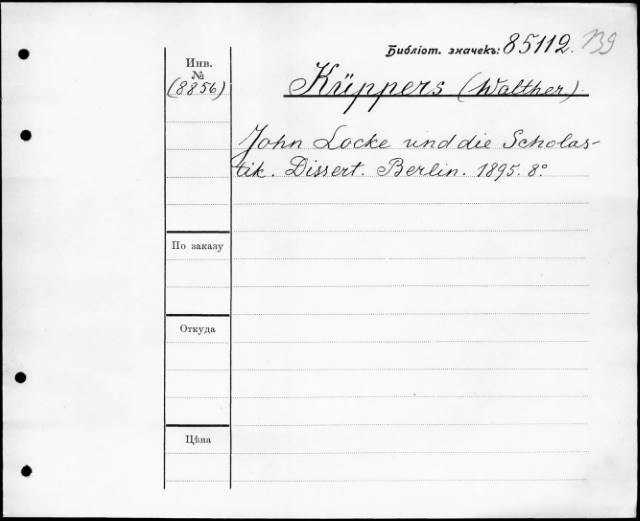 Библіот. значекъ: 85112. 139
Инв.
№
(8856)
Küppers (Walther).
John Locke und die Scholas-
tik. Dissert. Berlin. 1895. 8º
По заказу
Откуда
Цѣна